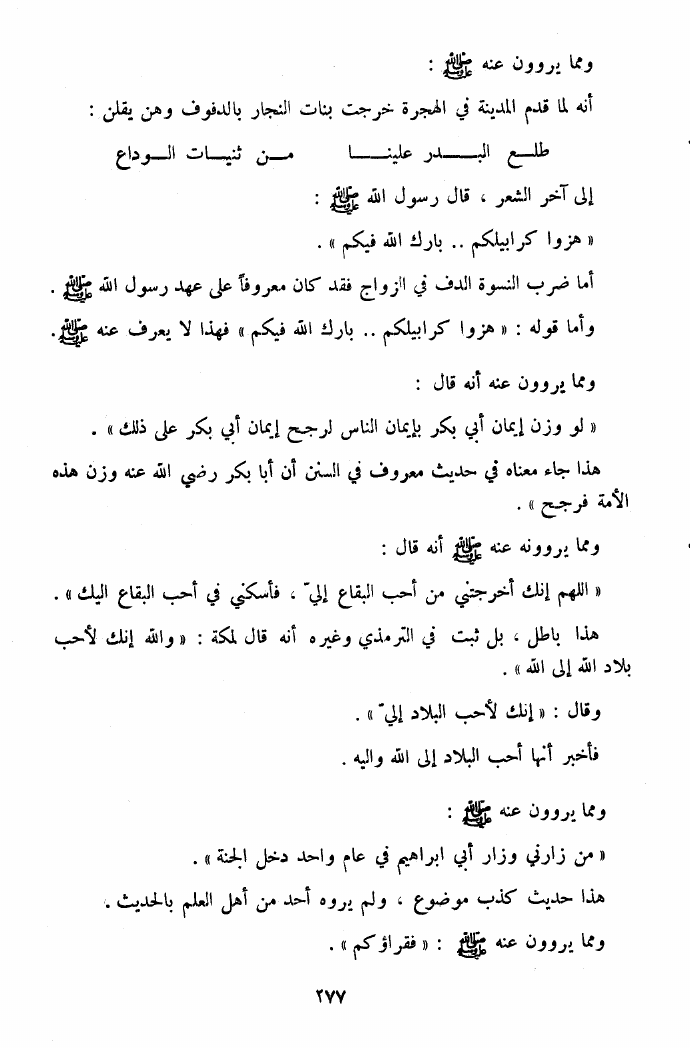 ومما يروون عنه ﷺ :
أنه لما قدم المدينة في الهجرة خرجت بنات النجار بالدفوف وهن يقلن :
طلـــع البــــــدر علينــــــا مـــن ثنيـــات الـــوداع
إلى آخر الشعر ، قال رسول الله ﷺ :
« هزوا كرابيلكم .. بارك الله فيكم » .
أما ضرب النسوة الدف في الزواج فقد كان معروفاً على عهد رسول الله ﷺ .
وأما قوله : « هزوا كرابيلكم .. بارك الله فيكم » فهذا لا يعرف عنه ﷺ.
ومما يروون عنه أنه قال :
« لو وزن إيمان أبي بكر بإيمان الناس لرجح إيمان أبي بكر على ذلك » .
هذا جاء معناه في حديث معروف في السنن أن أبا بكر رضي الله عنه وزن هذه
الأمة فرجح » .
ومما يروونه عنه ﷺ أنه قال :
« اللهم إنك أخرجتني من أحب البقاع إليّ ، فأسكني في أحب البقاع اليك » .
هذا باطل ، بل ثبت في الترمذي وغيره أنه قال لمكة : « والله إنك لأحب
بلاد الله إلى الله » .
وقال : « إنك لأحب البلاد إليّ » .
فأخبر أنها أحب البلاد إلى الله واليه .
ومما يروون عنه ﷺ :
« من زارني وزار أبي ابراهيم في عام واحد دخل الجنة » .
هذا حديث كذب موضوع ، ولم يروه أحد من أهل العلم بالحديث .
ومما يروون عنه ﷺ : « فقراؤكم » .
٢٧٧